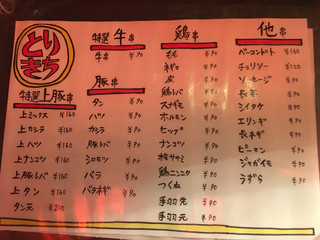 とりきち
特選上豚串
上ミックス ¥160
上カシラ ¥160
上ハツ ¥160
上ナンコツ ¥160
上豚レバ ¥160
上タン ¥160
タン元 ¥210
特選牛串
牛串 ¥90
豚串
タン ¥90
ハツ ¥90
カシラ ¥90
豚レバ ¥90
シロモツ ¥90
バラ ¥90
バラネギ ¥90
鶏串
もも ¥90
ネギマ ¥90
皮 ¥90
鶏レバ ¥90
スナギモ ¥90
ホルモン ¥90
ヒップ ¥90
ナンコツ ¥90
梅ササミ ¥90
鶏ニンニク ¥90
つくね ¥90
手羽先 ¥90
手羽元 ¥90
他串
ベーコントマト ¥160
チョリソー ¥120
ソーセージ ¥90
長芋 ¥90
シイタケ ¥90
エリンギ ¥90
長ネギ ¥90
ピーマン ¥90
ジャガイモ ¥90
うずら ¥90